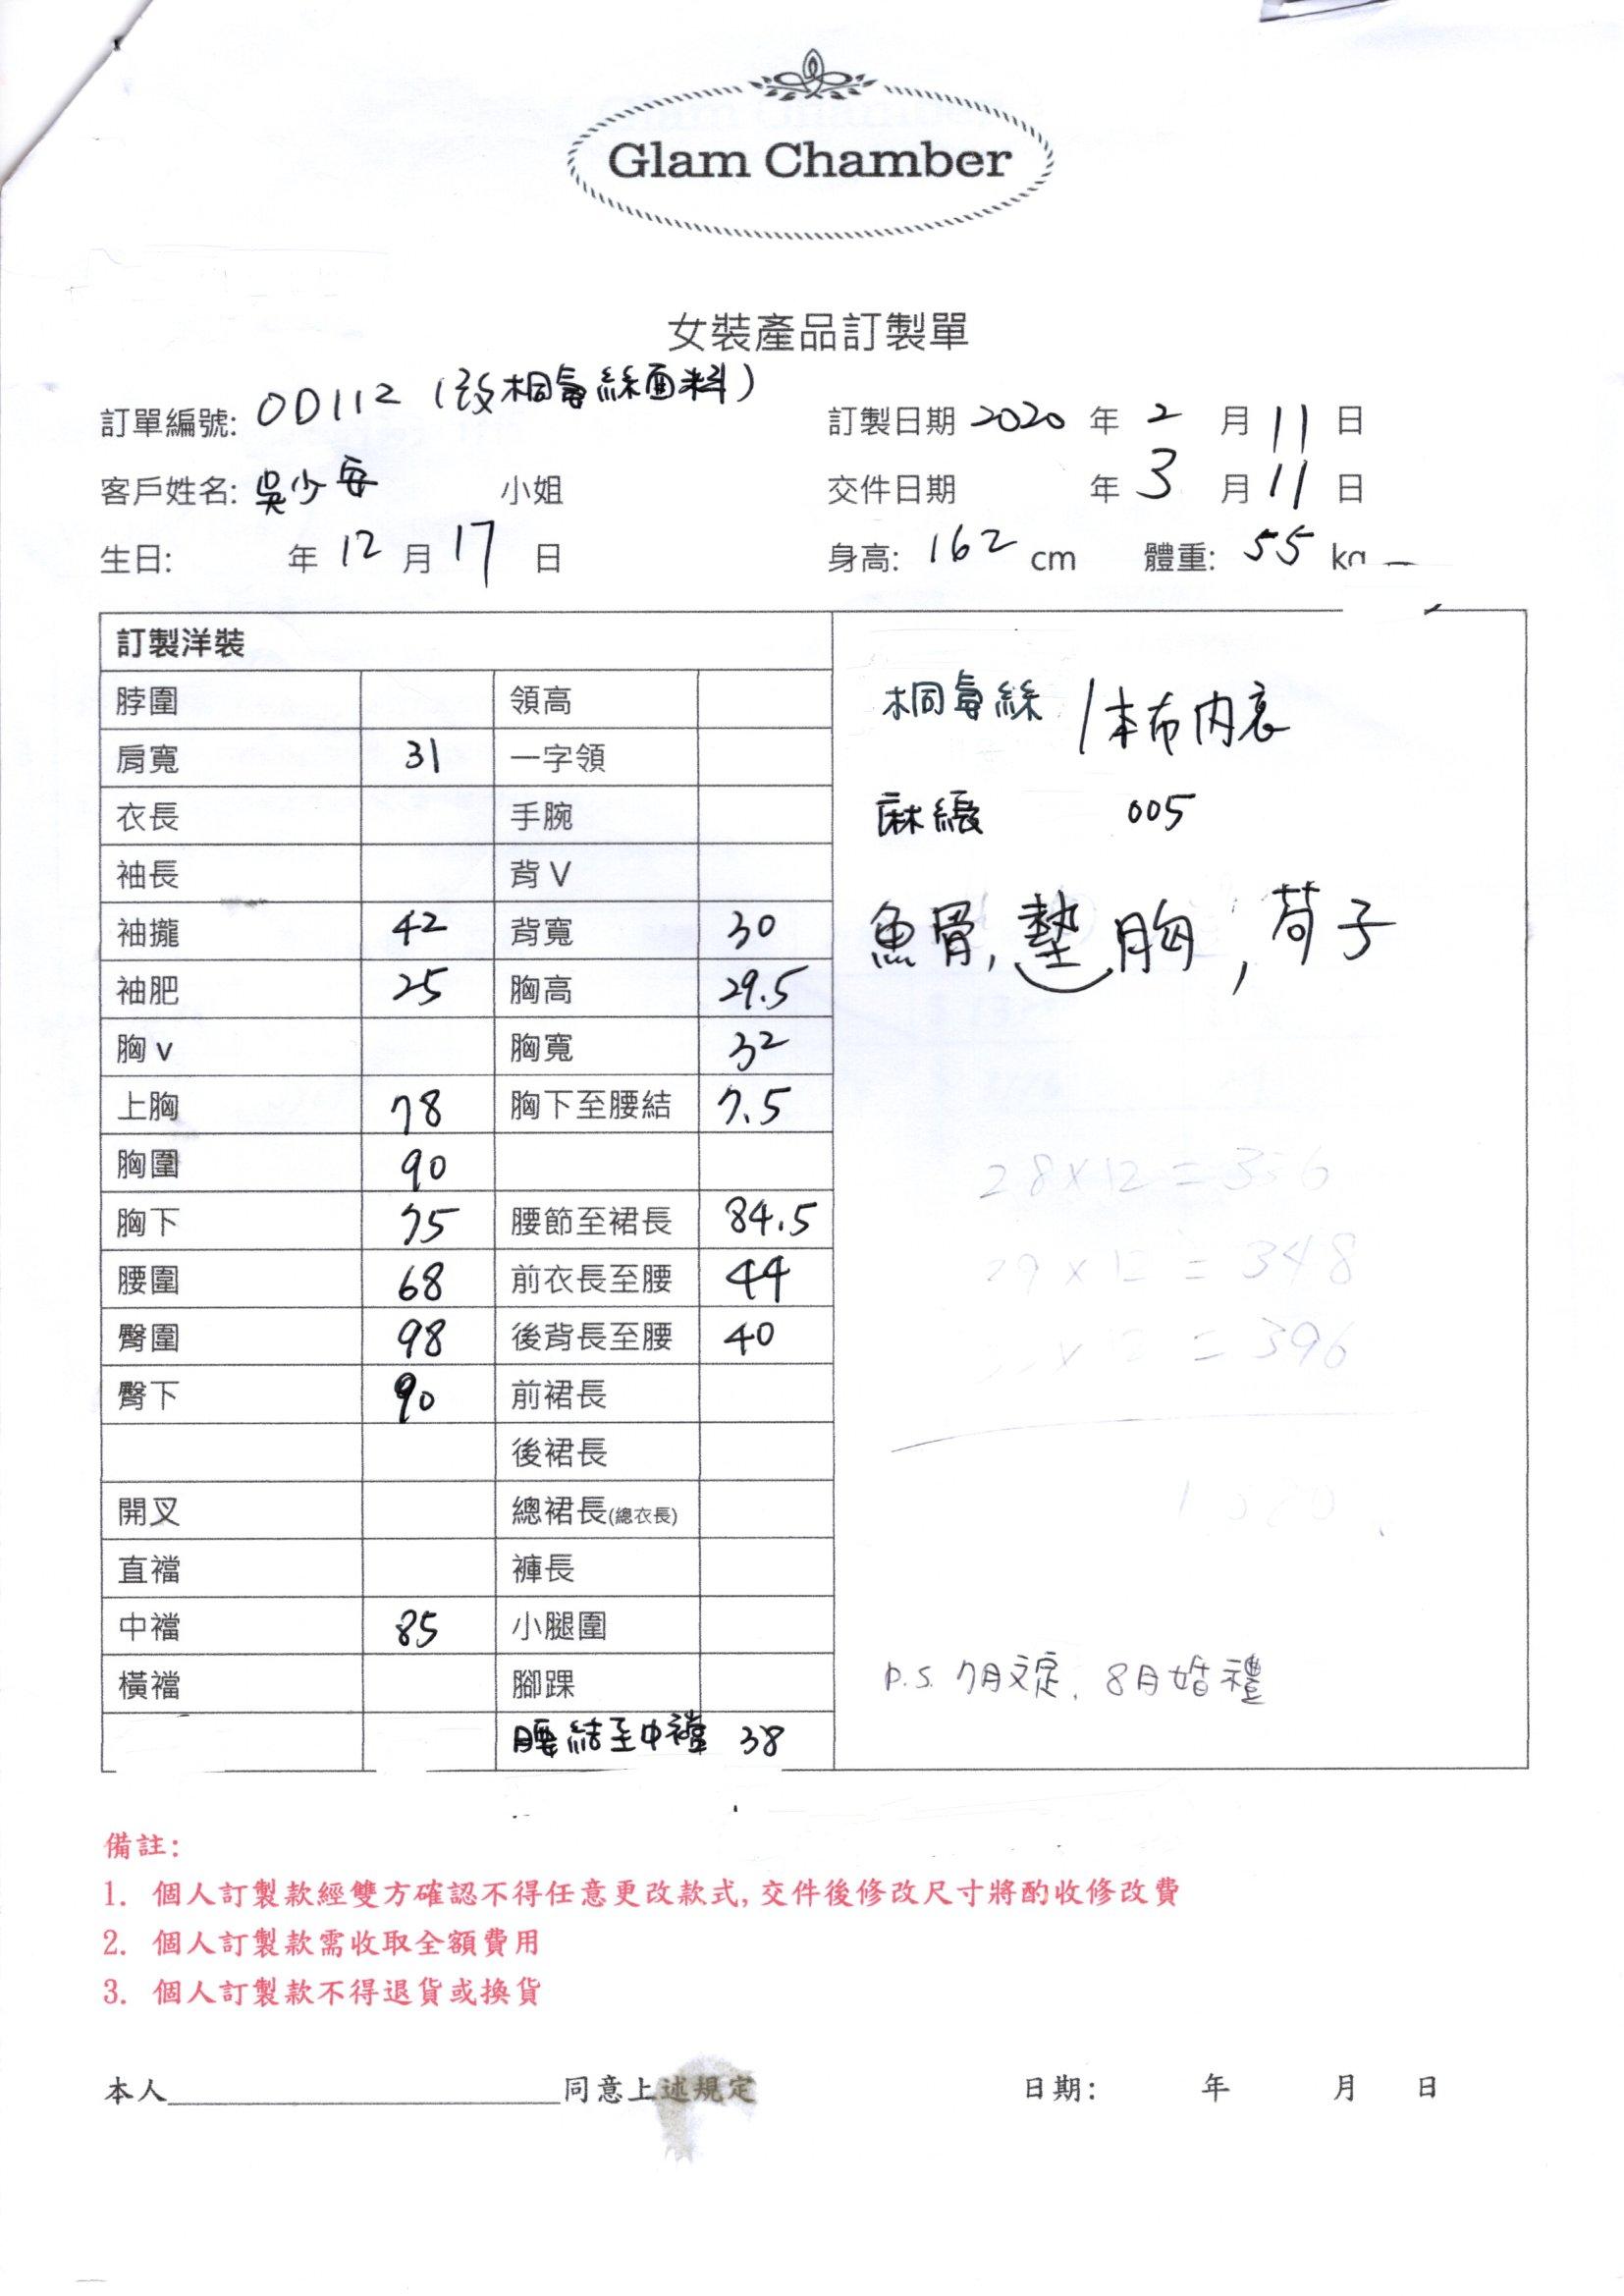 Glam Chamber
女裝產品訂製單
訂單編號: OD112 (改桐每絲面料)
訂製日期 2020 年 2 月 11 日
客戶姓名: 吳少安 小姐
交件日期 年 3 月 11 日
生日: 年 12 月 17 日
身高: 162 cm 體重: 55 kg
訂製洋裝
脖圍 領高
肩寬 31 一字領
衣長 手腕
袖長 背 V
袖攏 42 背寬 30
袖肥 25 胸高 29.5
胸 v 胸寬 32
上胸 78 胸下至腰結 7.5
胸圍 90
胸下 75 腰節至裙長 84.5
腰圍 68 前衣長至腰 44
臀圍 98 後背長至腰 40
臀下 90 前裙長
後裙長
開叉 總裙長(總衣長)
直襠 褲長
中襠 85 小腿圍
橫襠 腳踝
腰結至中襠 38
桐每絲 / 本布內裏
麻緞 005
魚骨, 墊胸, 荷子
28 x 12 = 336
29 x 12 = 348
= 396
P.S. 7月文定. 8月婚禮
備註:
1. 個人訂製款經雙方確認不得任意更改款式, 交件後修改尺寸將酌收修改費
2. 個人訂製款需收取全額費用
3. 個人訂製款不得退貨或換貨
本人 同意上述規定 日期: 年 月 日